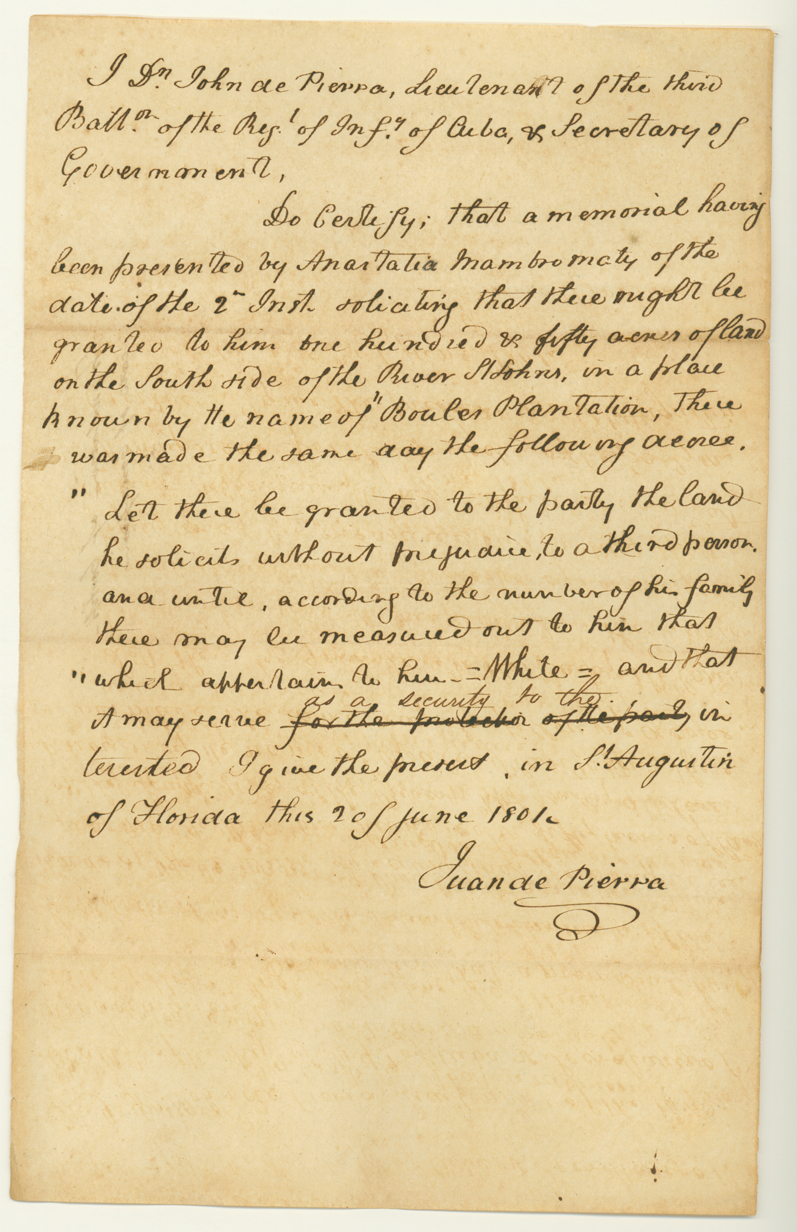 I Dn. John de Pierra, Lieutenant of the third
Batt.on of the Reg.t of Inf.y of Cuba, & Secretary of
Government,
Do Certify; that a memorial having
been presented by Anastatia Mambromaty of the
date of the 2n Inst. soliciting that there might be
granted to him one hundred & fifty acres of land
on the South side of the River St Johns, in a place
known by the name of "Boules Plantation, There
was made the same day the following decree.
" Let there be granted to the party the land
he solicits without prejudice, to a third person.
and until, according to the number of his family
there may be measured out to him that
" which appertains to him = White = and that
as a security to the
it may serve for the protection of the party in
terested I give the present, in St. Augustin
of Florida this 2 of June 1801.
Juan de Pierra